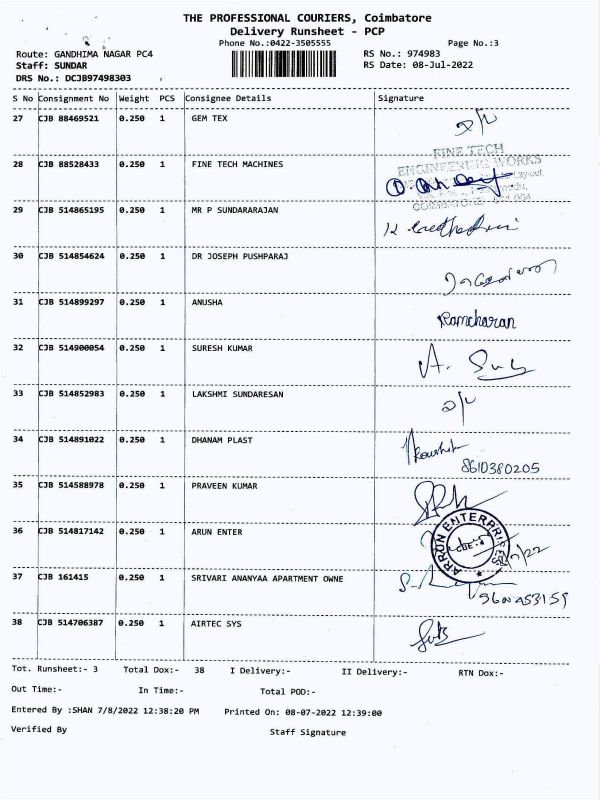 THE PROFESSIONAL COURIERS, Coimbatore
Delivery Runsheet - PCP
Phone No.:0422-3505555 Page No.:3
Route: GANDHIMA NAGAR PC4 RS No.: 974983
Staff: SUNDAR RS Date: 08-Jul-2022
DRS No.: DCJB97498303
S No Consignment No Weight PCS Consignee Details Signature
27 CJB 88469521 0.250 1 GEM TEX
FINE TECH
ENGINEERING WORKS
28 CJB 88528433 0.250 1 FINE TECH MACHINES
Layout,
29 CJB 514865195 0.250 1 MR P SUNDARARAJAN
30 CJB 514854624 0.250 1 DR JOSEPH PUSHPARAJ
31 CJB 514899297 0.250 1 ANUSHA
Ramcharan
32 CJB 514900054 0.250 1 SURESH KUMAR
33 CJB 514852983 0.250 1 LAKSHMI SUNDARESAN
34 CJB 514891022 0.250 1 DHANAM PLAST
Koushik
8610380205
35 CJB 514588978 0.250 1 PRAVEEN KUMAR
36 CJB 514817142 0.250 1 ARUN ENTER
ARRUN ENTERPRISES
CBE-4
37 CJB 161415 0.250 1 SRIVARI ANANYAA APARTMENT OWNE
38 CJB 514706387 0.250 1 AIRTEC SYS
Tot. Runsheet:- 3 Total Dox:- 38 I Delivery:- II Delivery:- RTN Dox:-
Out Time:- In Time:- Total POD:-
Entered By :SHAN 7/8/2022 12:38:20 PM Printed On: 08-07-2022 12:39:00
Verified By Staff Signature